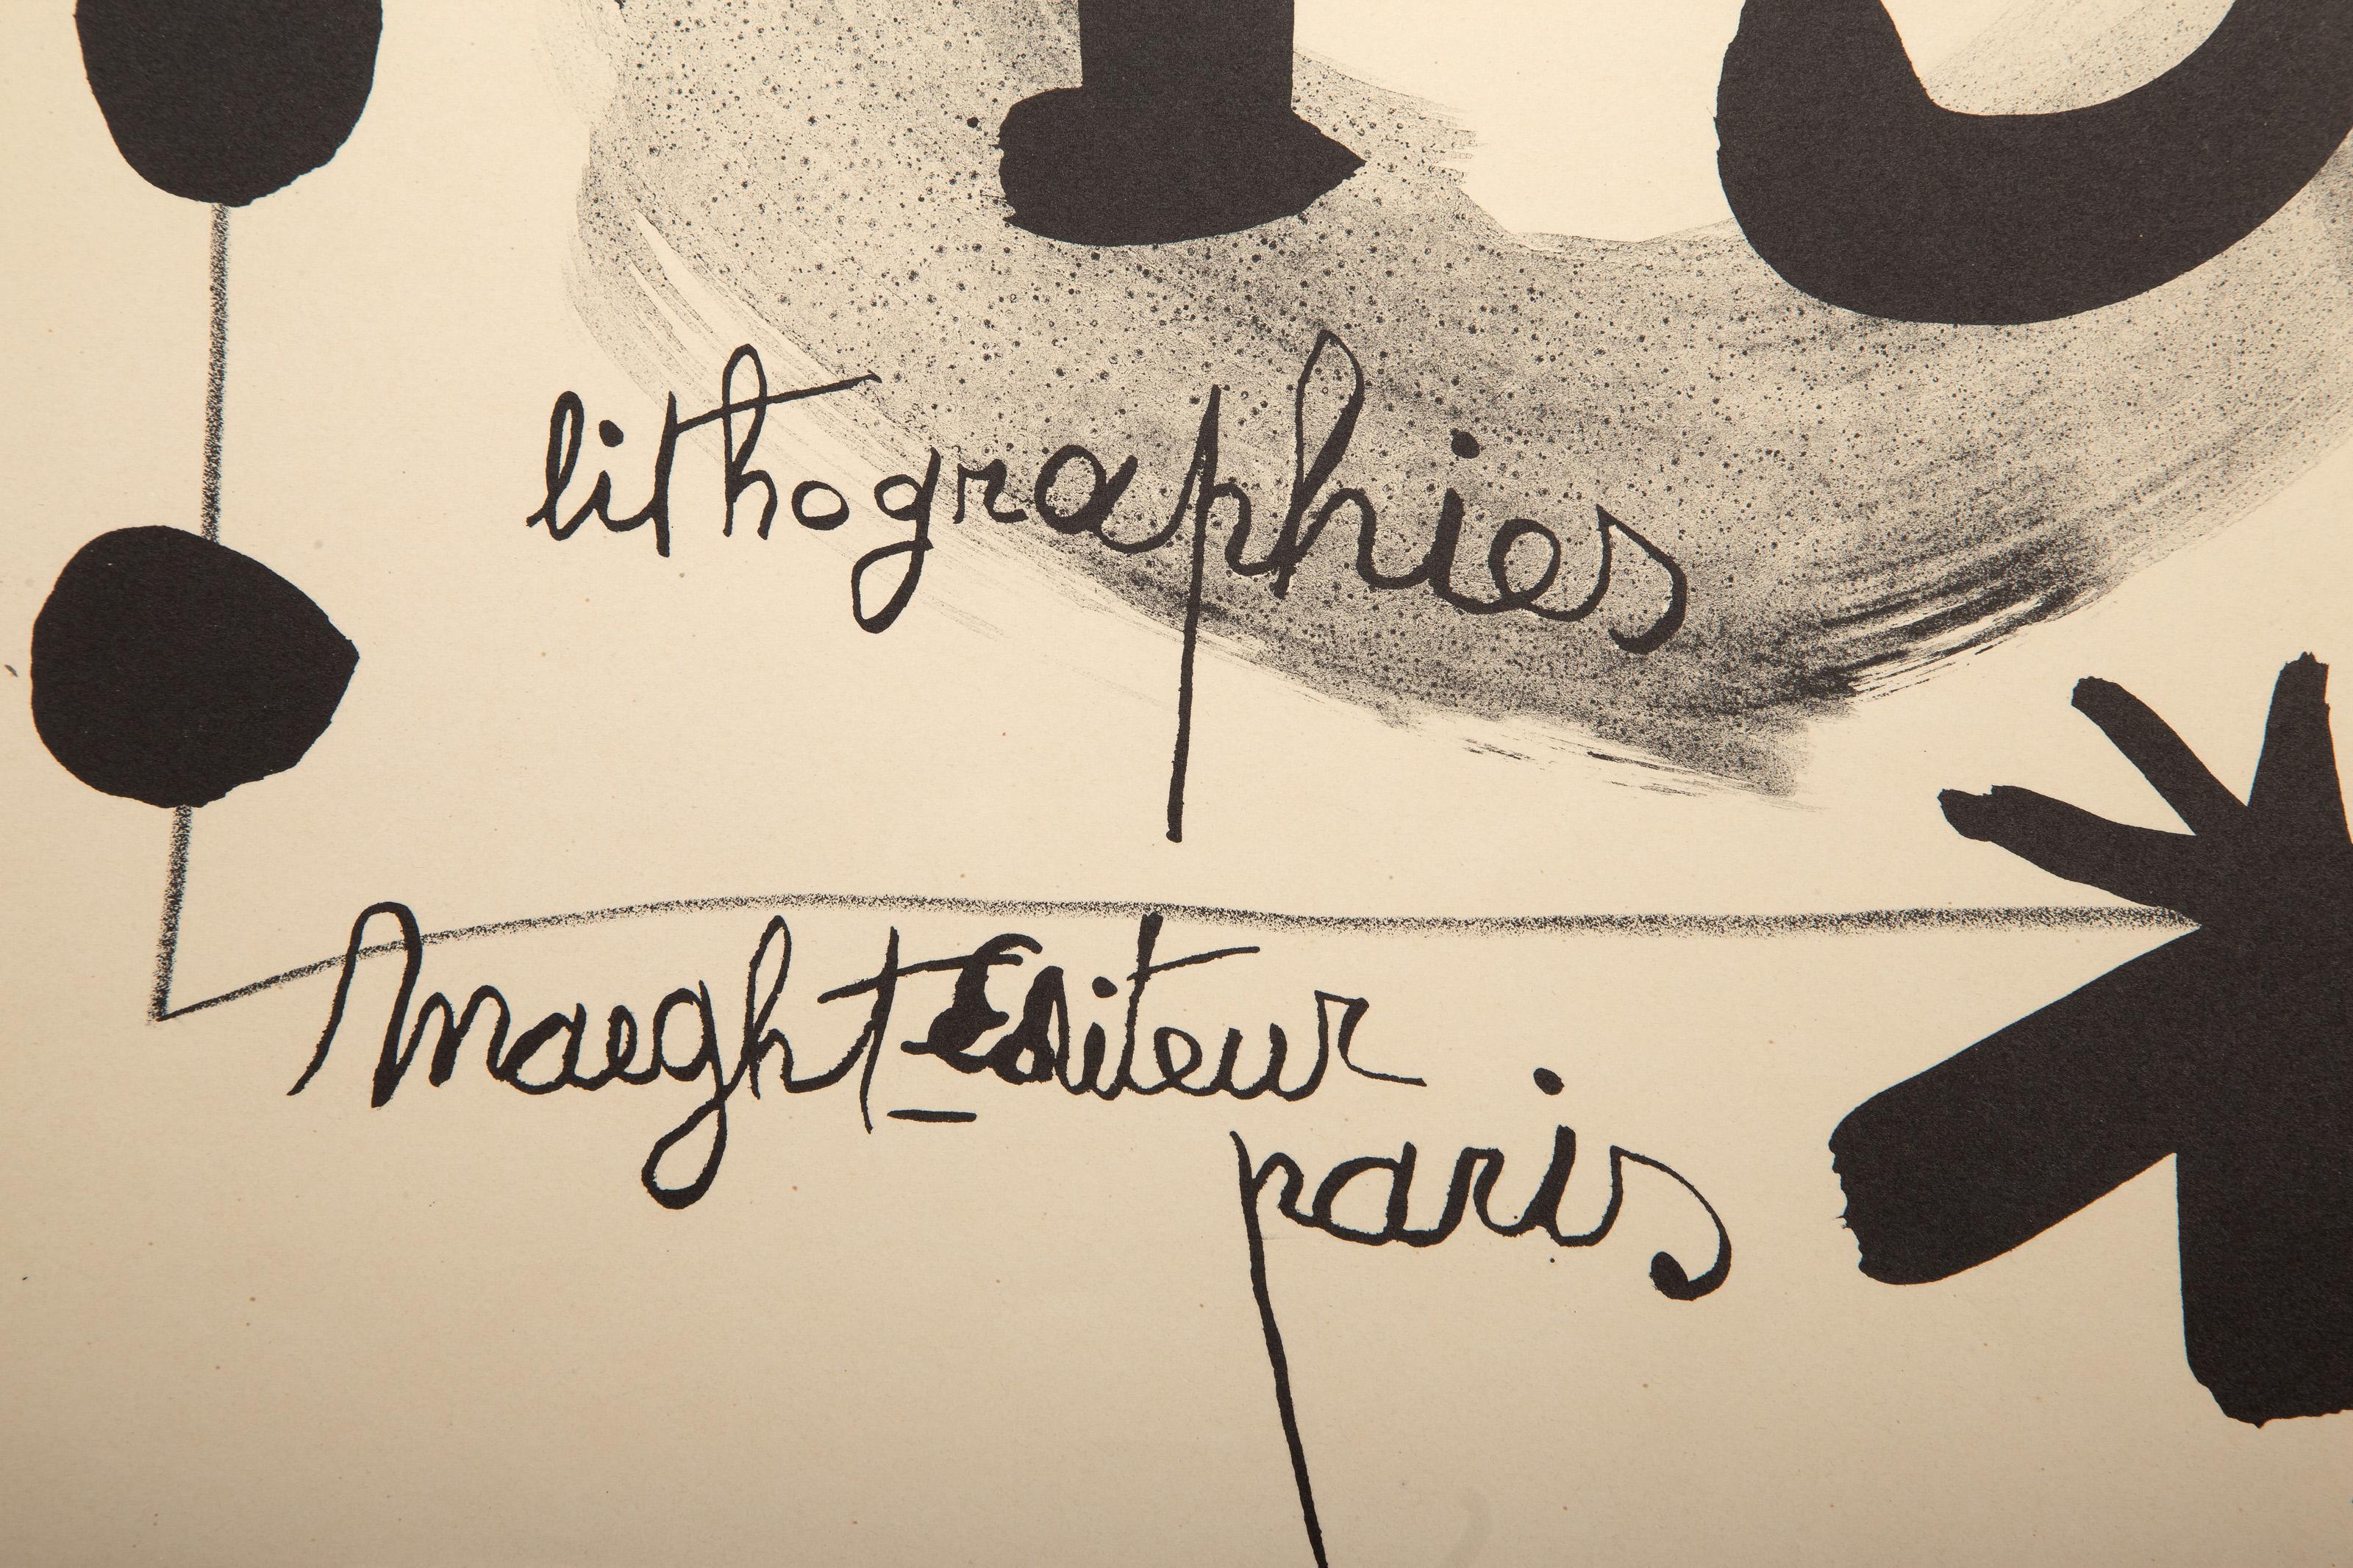 lithographies
Maeght Editeur
paris